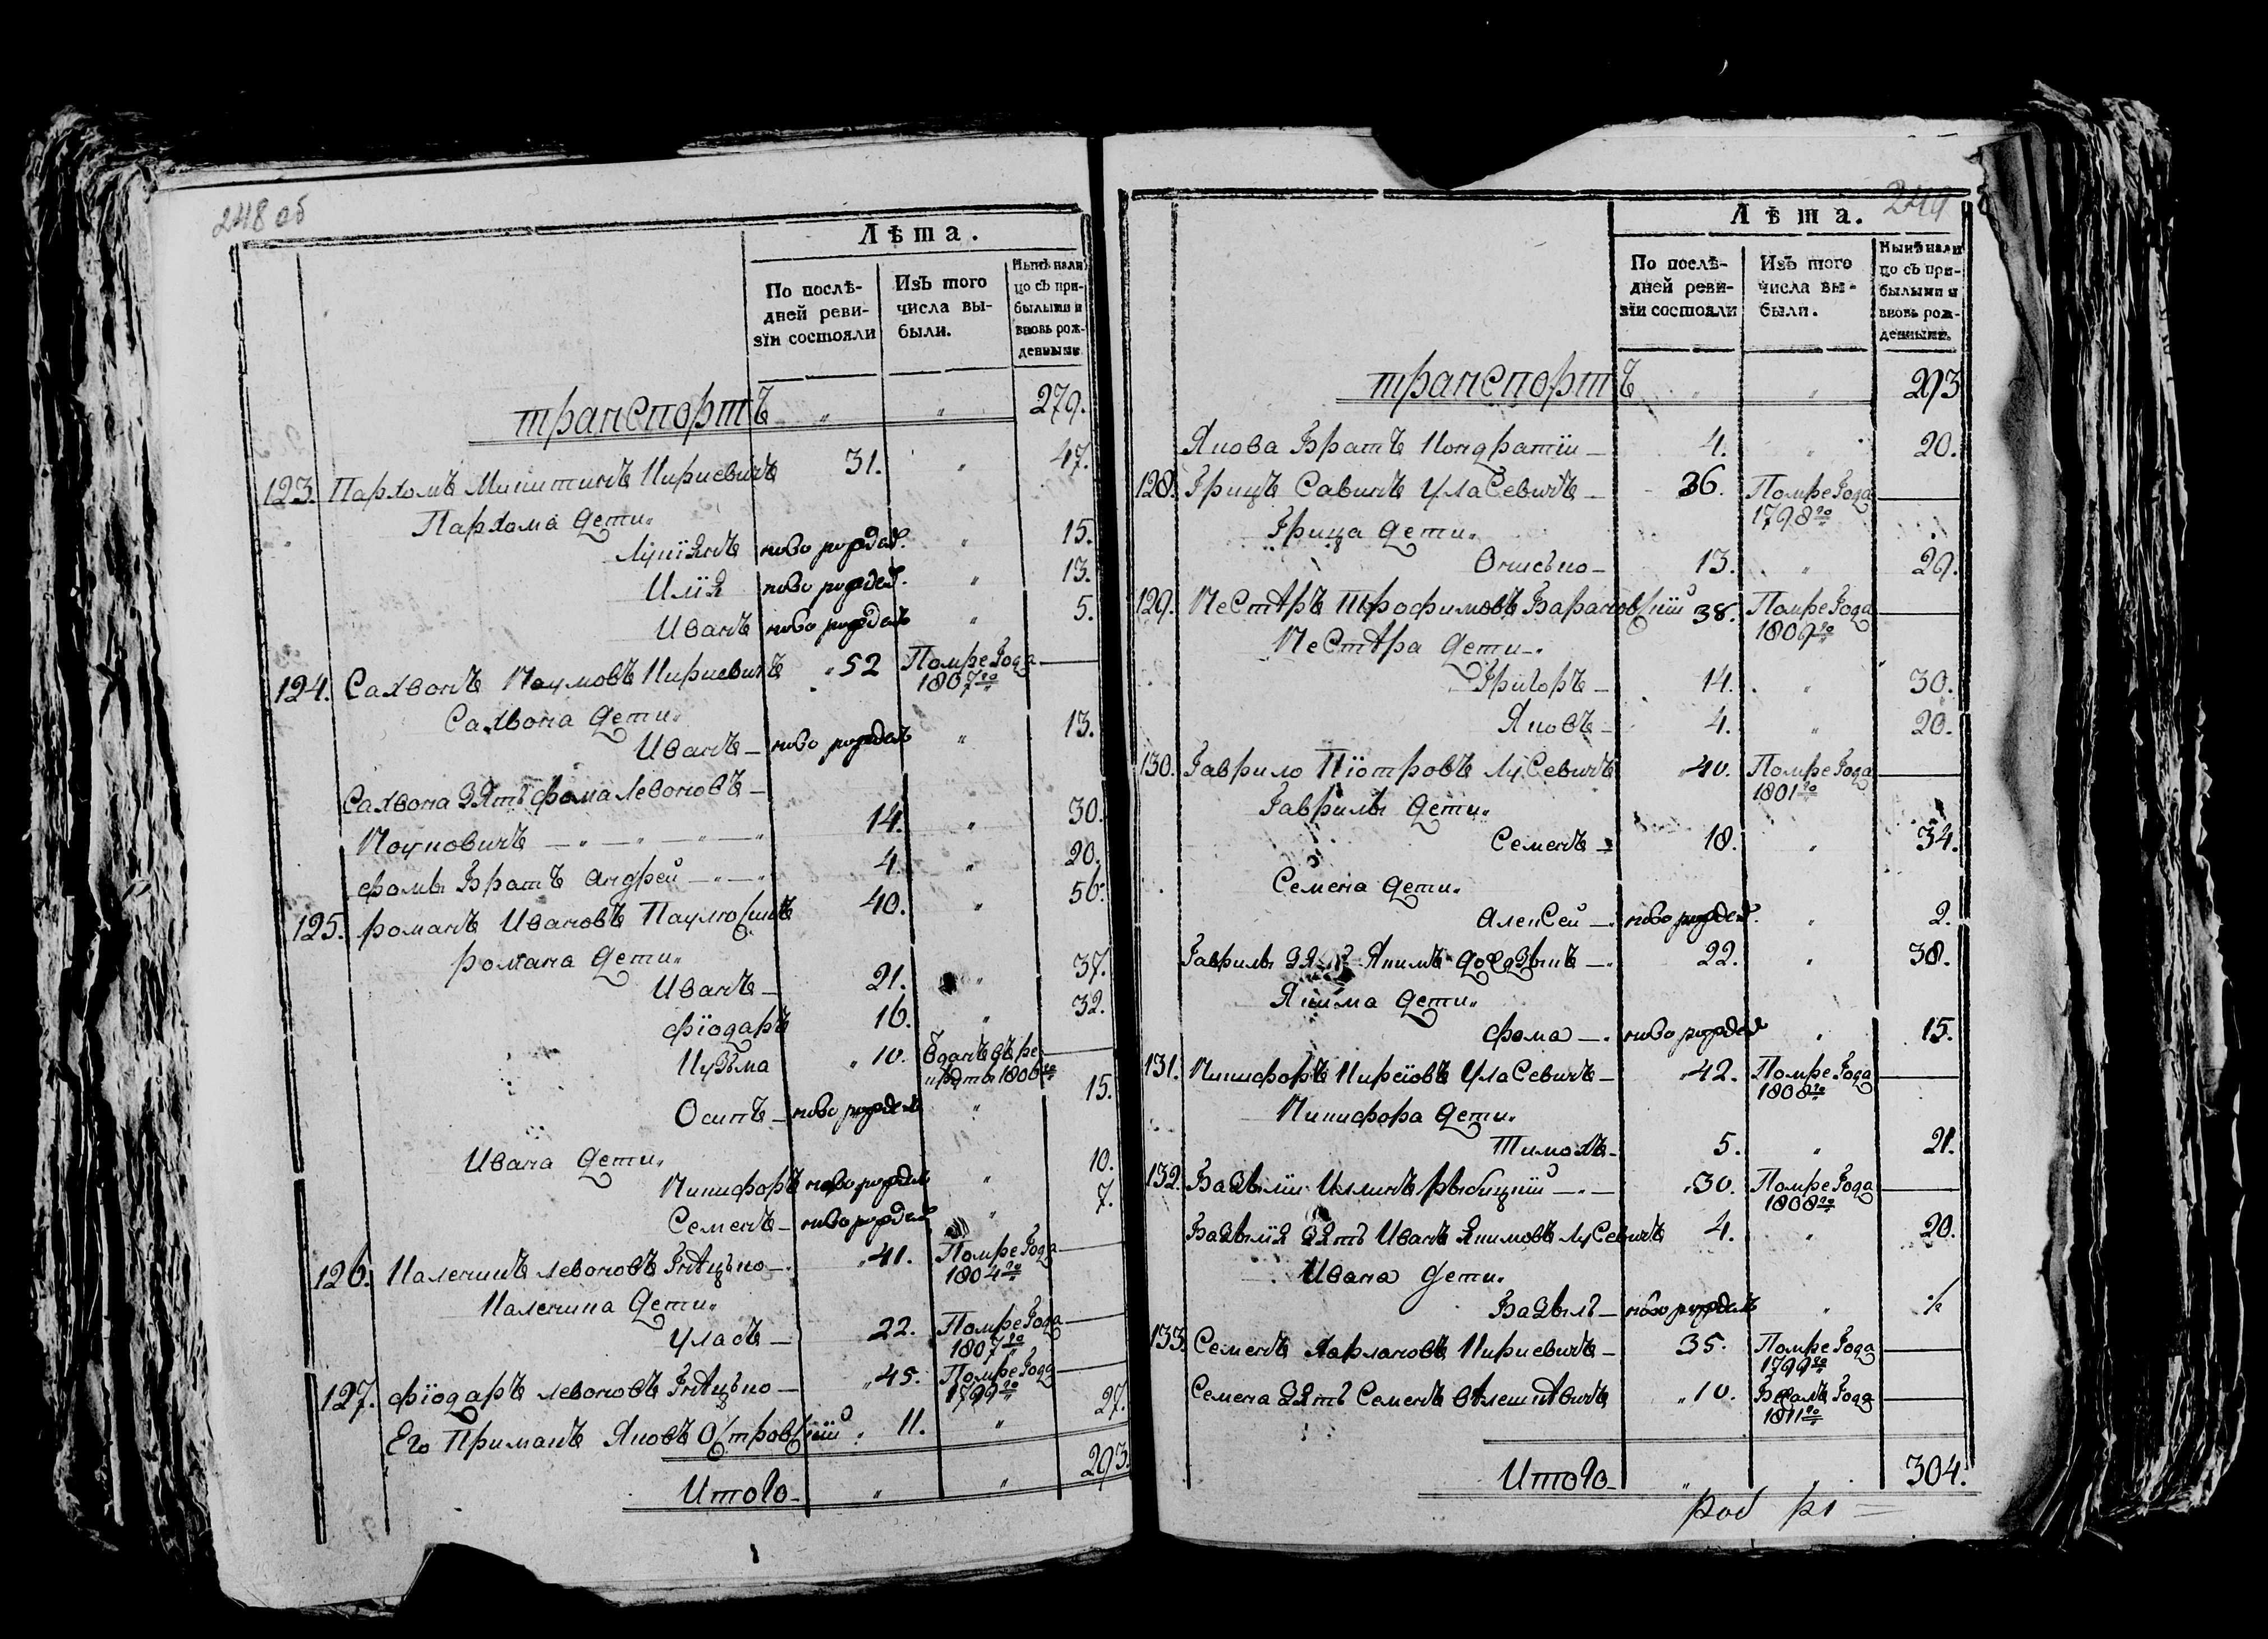 248 об
Лѣта.
По послѣ-
дней реви-
зіи состояли
Изъ того
числа вы-
были.
Нынѣ нали
цо съ при-
былыми и
вновь рож-
денными
транспортъ " " 279.
123. Пархомъ Микитинъ Киркевичъ 31. " 47.
Пархома дети
Лукіянъ ново рожден. " 15.
Илія ново рожден. " 13.
Иванъ ново рожденъ " 5.
124. Сахвонъ Наумовъ Киркевичъ 52 Помре Года
1807го
Сахвона дети
Иванъ ново рожденъ " 13.
Сахвона зять фома Левоновъ
14. " 30.
фомы Братъ Андрей 4. " 20.
125. романъ Ивановъ 40. " 56.
романа дети
Иванъ 21. " 37.
фіодаръ 16. " 32.
Кузьма 10. 1806го
Осипъ ново рожденъ " 15.
Ивана дети
Никифоръ ново рожден " 10.
Семенъ ново рожден " 7.
126. Каленикъ Левоновъ 41. Помре Года
1804го
Каленика дети
Уласъ 22. Помре Года
1807го
127. фіодаръ Левоновъ 45. Помре Года
1799го
Его Приманъ Яковъ Островскій 11. " 27.
Итого " " 293.
249
Лѣта.
По послѣ-
дней реви-
зіи состояли
Изъ того
числа вы-
были.
Нынѣ нали
цо съ при-
былыми и
вновь рож-
денными.
транспортъ " " 293
Якова Братъ Кондратій 4. " 20.
128. Грицъ Савинъ Уласевичъ 36. Помре Года
1798го
Грица дети
13. " 29.
129. Нестѣръ Трофимовъ Барановскій 38. Помре Года
1809го
Нестѣра дети
Григоръ 14. " 30.
Яковъ 4. " 20.
130. Гаврило Піотровъ Лусевичъ 40. Помре Года
1801го
Гаврилы дети
Семенъ 18. " 34.
Семена дети
Алексей ново рожден. " 2.
Гаврилы Якимъ 22. " 38.
Якима дети
фома ново рожден " 15.
131. Никифоръ Киреіовъ Уласевичъ 42. Помре Года
1808го
Никифора дети
Тимохъ 5. " 21.
132. Базыліи Илинъ рыбицкій 30. Помре Года
1808го
Базылія зять Иванъ Якимовъ Лусевичъ 4. " 20.
Ивана дети
Базыль ново рожденъ "
133. Семенъ Киркевичъ 35. Помре Года
1799го
Семена зять Семенъ 10. Года
1811го
Итого " " 304.